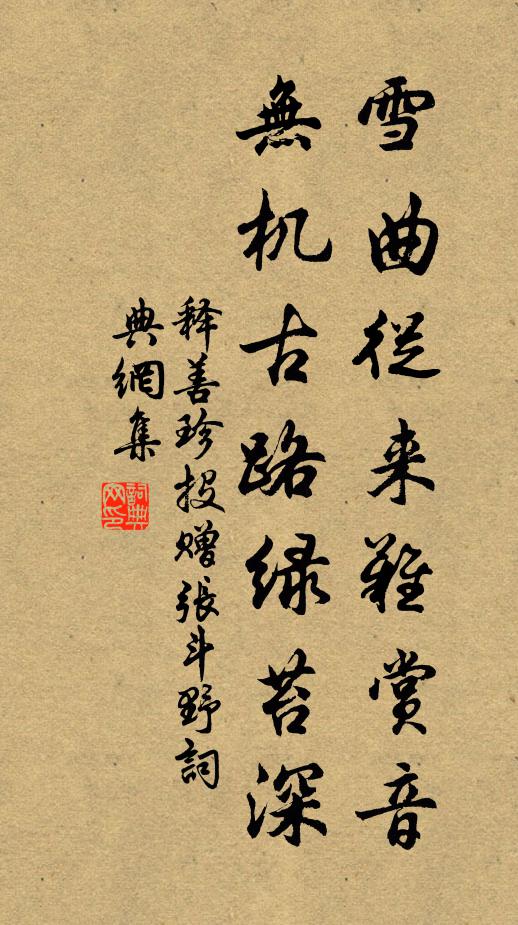 雪曲從来難赏音
無机古路绿苔深
释善珍投赠張斗野詞
典網集
詞典网印